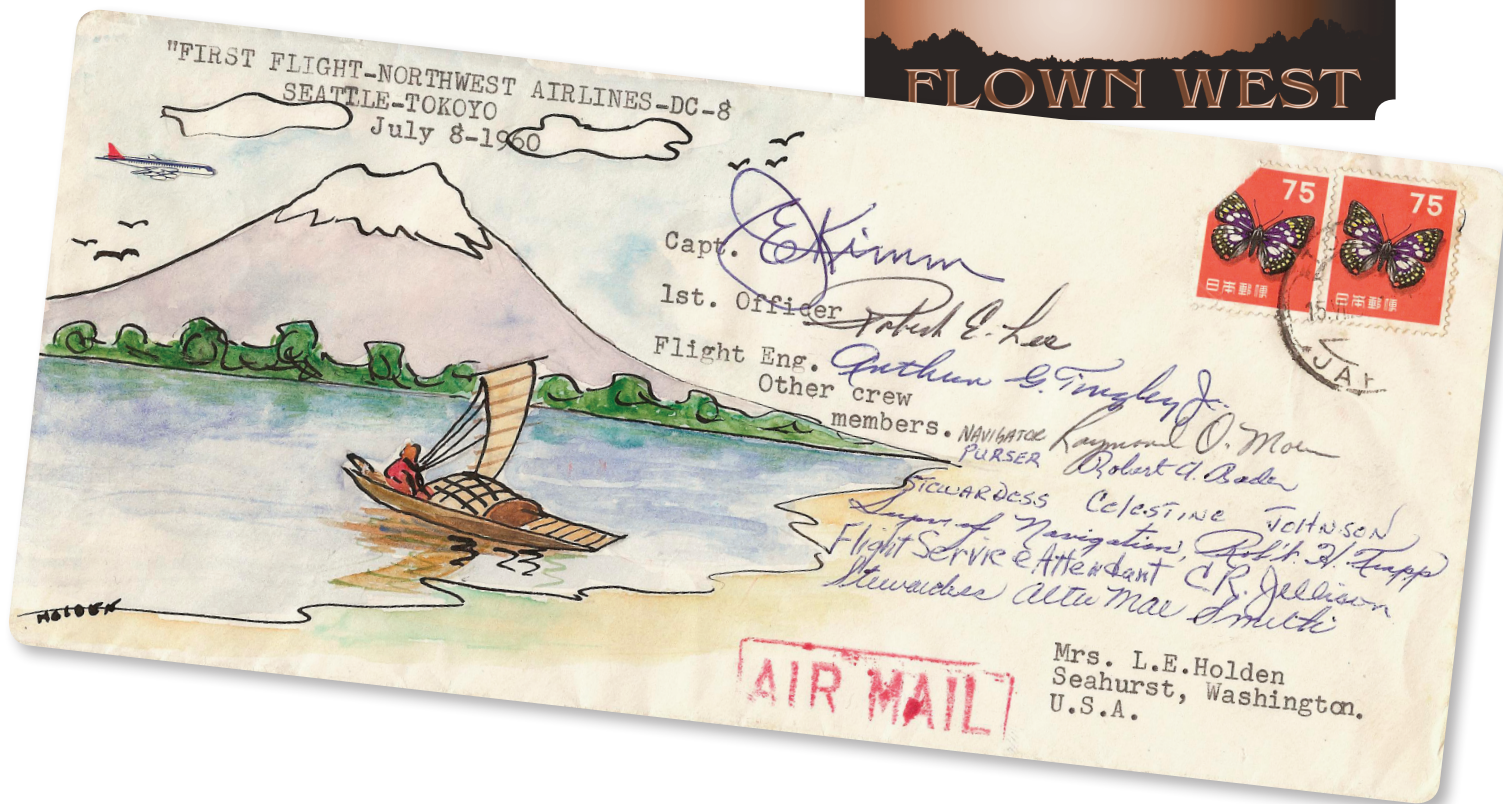 FLOWN WEST
"FIRST FLIGHT-NORTHWEST AIRLINES-DC-8
SEATTLE-TOKOYO
July 8-1960
75
日本郵便
75
日本郵便
15.VII
JAP
Capt. E Kimm
1st. Officer Robert E. Lee
Flight Eng. Arthur G. Tingley Jr.
Other crew
members.
NAVIGATOR Raymond O. Moen
PURSER Robert A. Bader
STEWARDESS CELESTINE JOHNSON
Supv of Navigation, Rob't. H. Trapp
Flight Service Attendant C.R. Jellison
Stewardess Alta Mae Smith
HOLDEN
AIR MAIL
Mrs. L.E.Holden
Seahurst, Washington.
U.S.A.